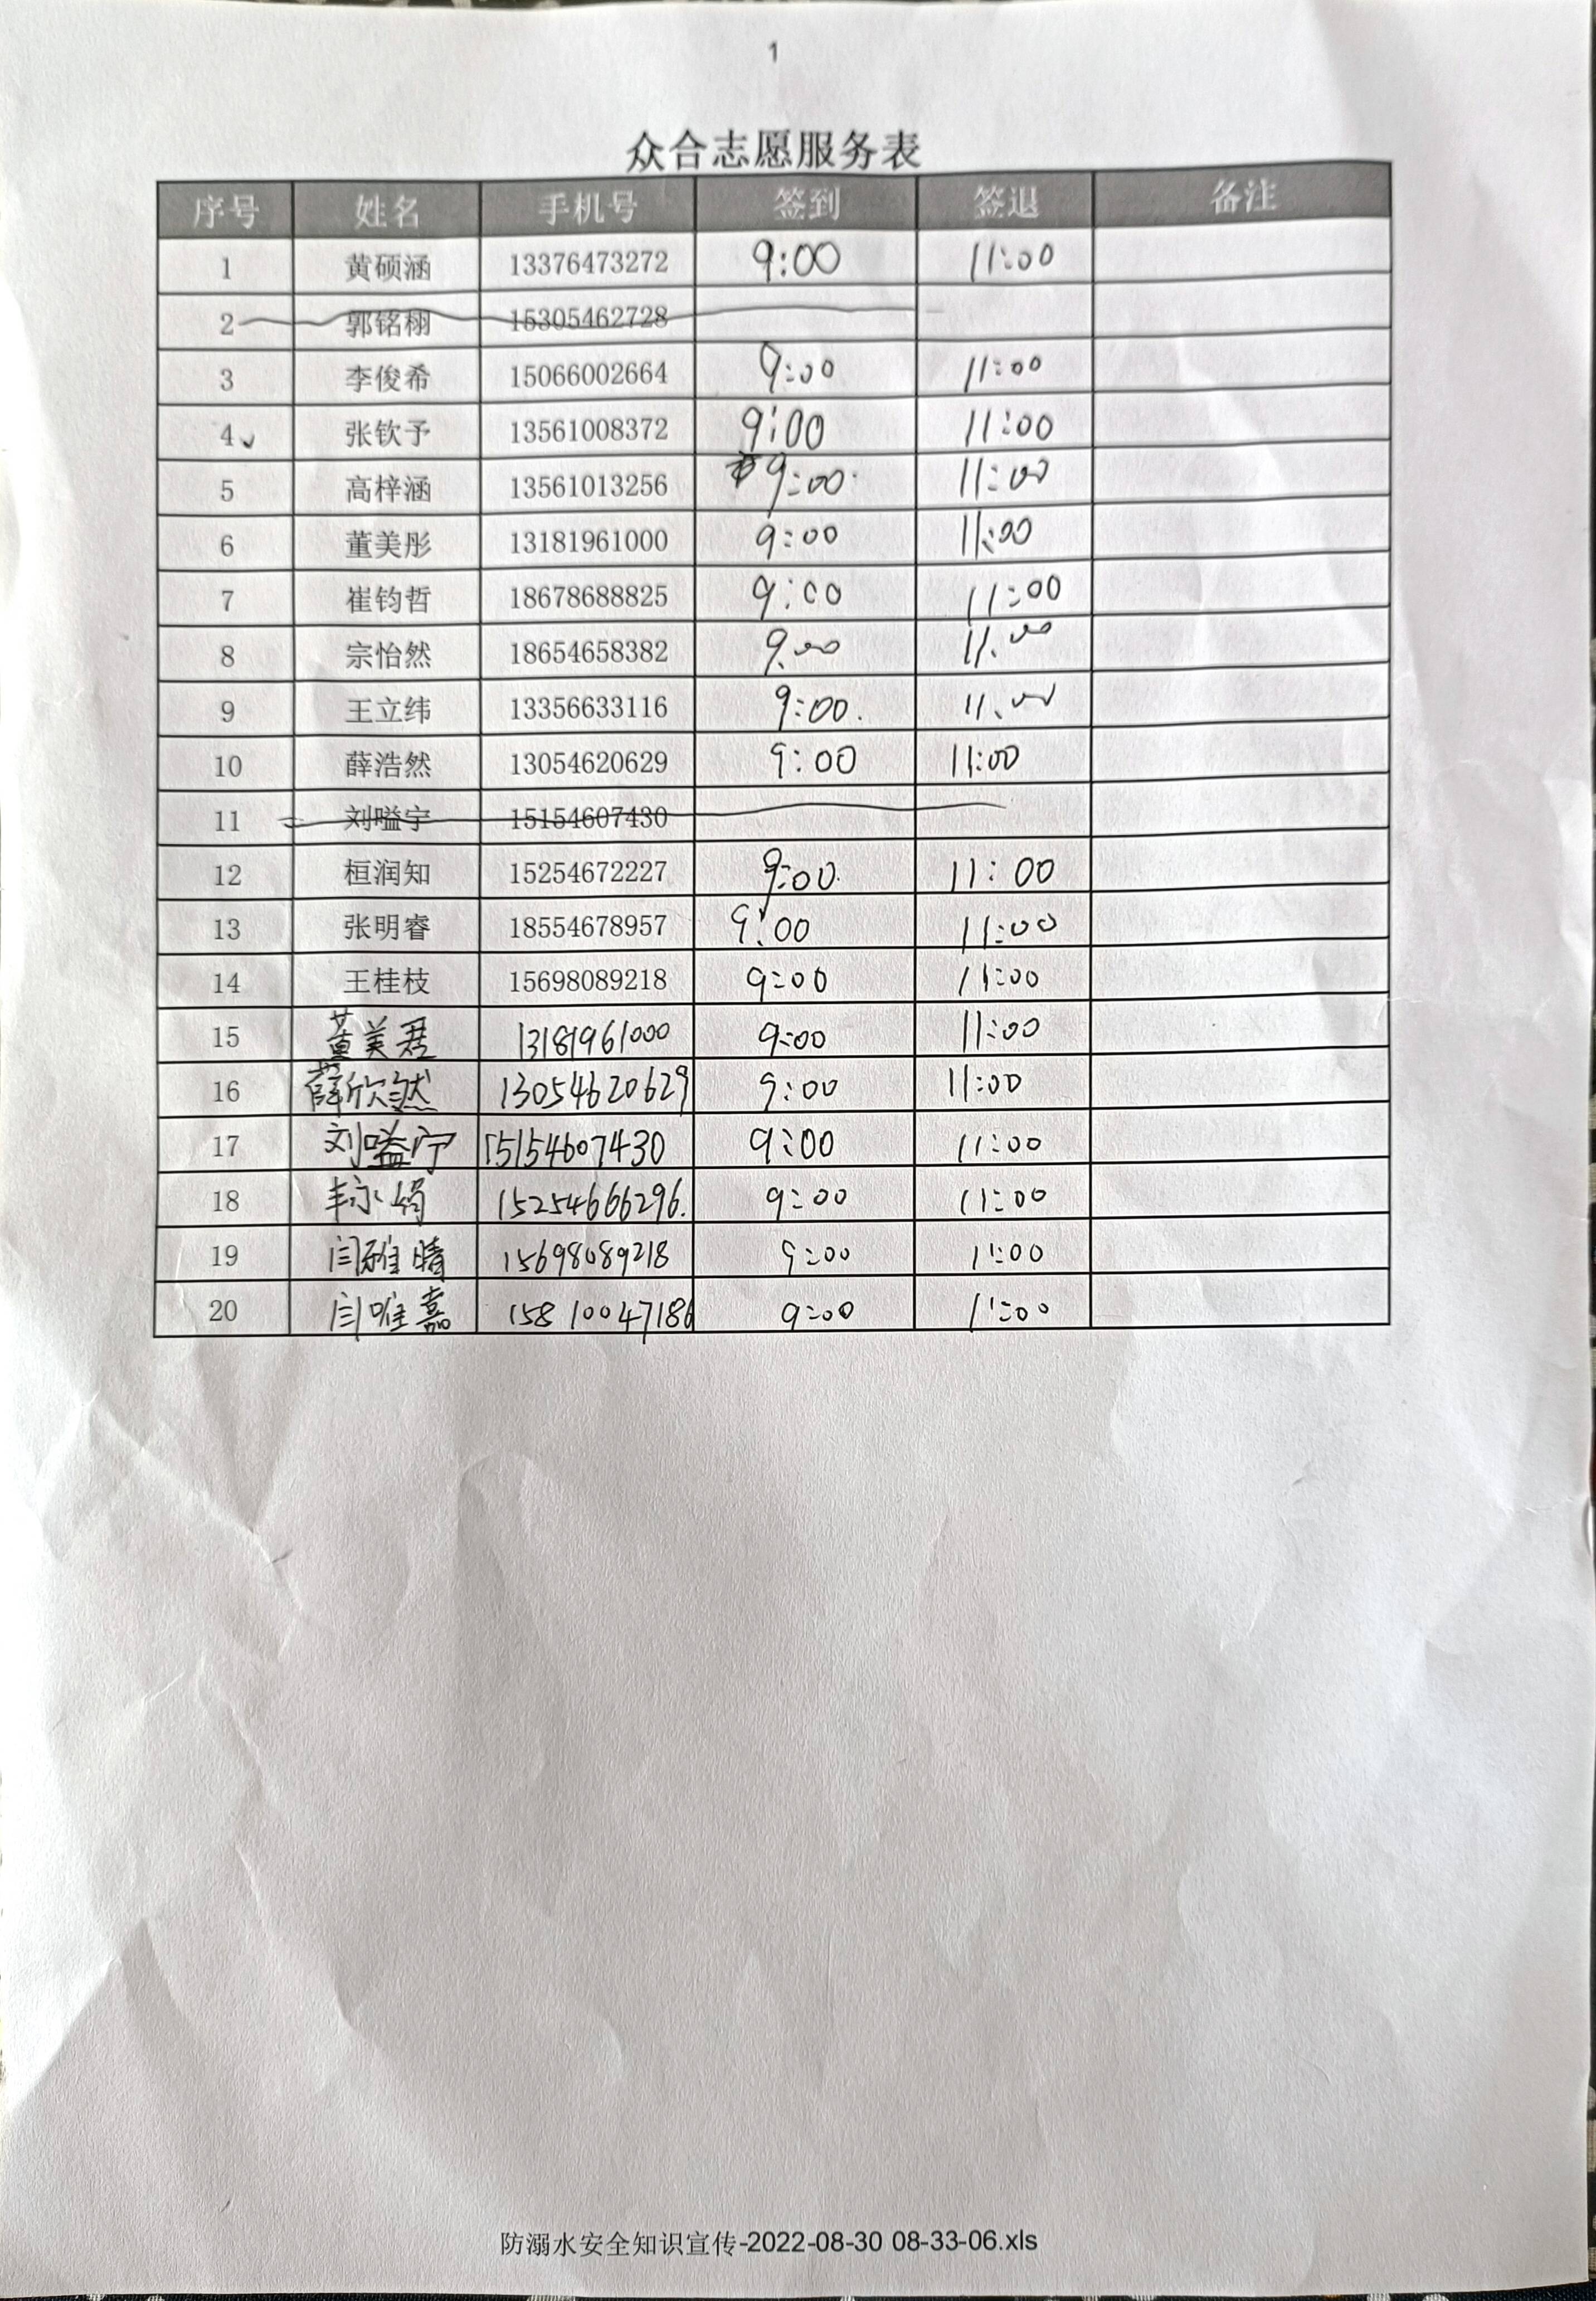 1
众合志愿服务表
序号 姓名 手机号 签到 签退 备注
1 黄硕涵 13376473272 9:00 11:00
2 郭铭栩 15305462728
3 李俊希 15066002664 9:00 11:00
4 张钦予 13561008372 9:00 11:00
5 高梓涵 13561013256 9:00 11:00
6 董美彤 13181961000 9:00 11:00
7 崔钧哲 18678688825 9:00 11:00
8 宗怡然 18654658382 9:00 11:00
9 王立纬 13356633116 9:00 11:00
10 薛浩然 13054620629 9:00 11:00
11 刘嗌宁 15154607430
12 桓润知 15254672227 9:00 11:00
13 张明睿 18554678957 9:00 11:00
14 王桂枝 15698089218 9:00 11:00
15 董美君 13181961000 9:00 11:00
16 薛欣然 13054620629 9:00 11:00
17 刘嗌宁 15154607430 9:00 11:00
18 15254666296. 9:00 11:00
19 闫雅晴 15698089218 9:00 11:00
20 闫唯嘉 15810047186 9:00 11:00
防溺水安全知识宣传-2022-08-30 08-33-06.xls